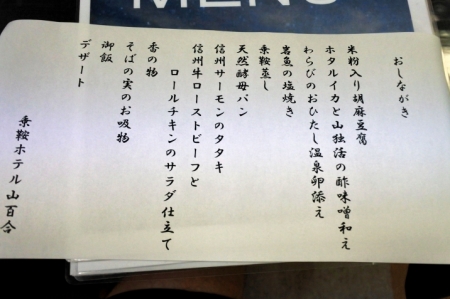 MENU
おしながき
米粉入り胡麻豆腐
ホタルイカと山独活の酢味噌和え
わらびのおひたし温泉卵添え
岩魚の塩焼き
乗鞍蒸し
天然酵母パン
信州サーモンのタタキ
信州牛ローストビーフと
ロールチキンのサラダ仕立て
香の物
そばの実のお吸物
御飯
デザート
乗鞍ホテル山百合